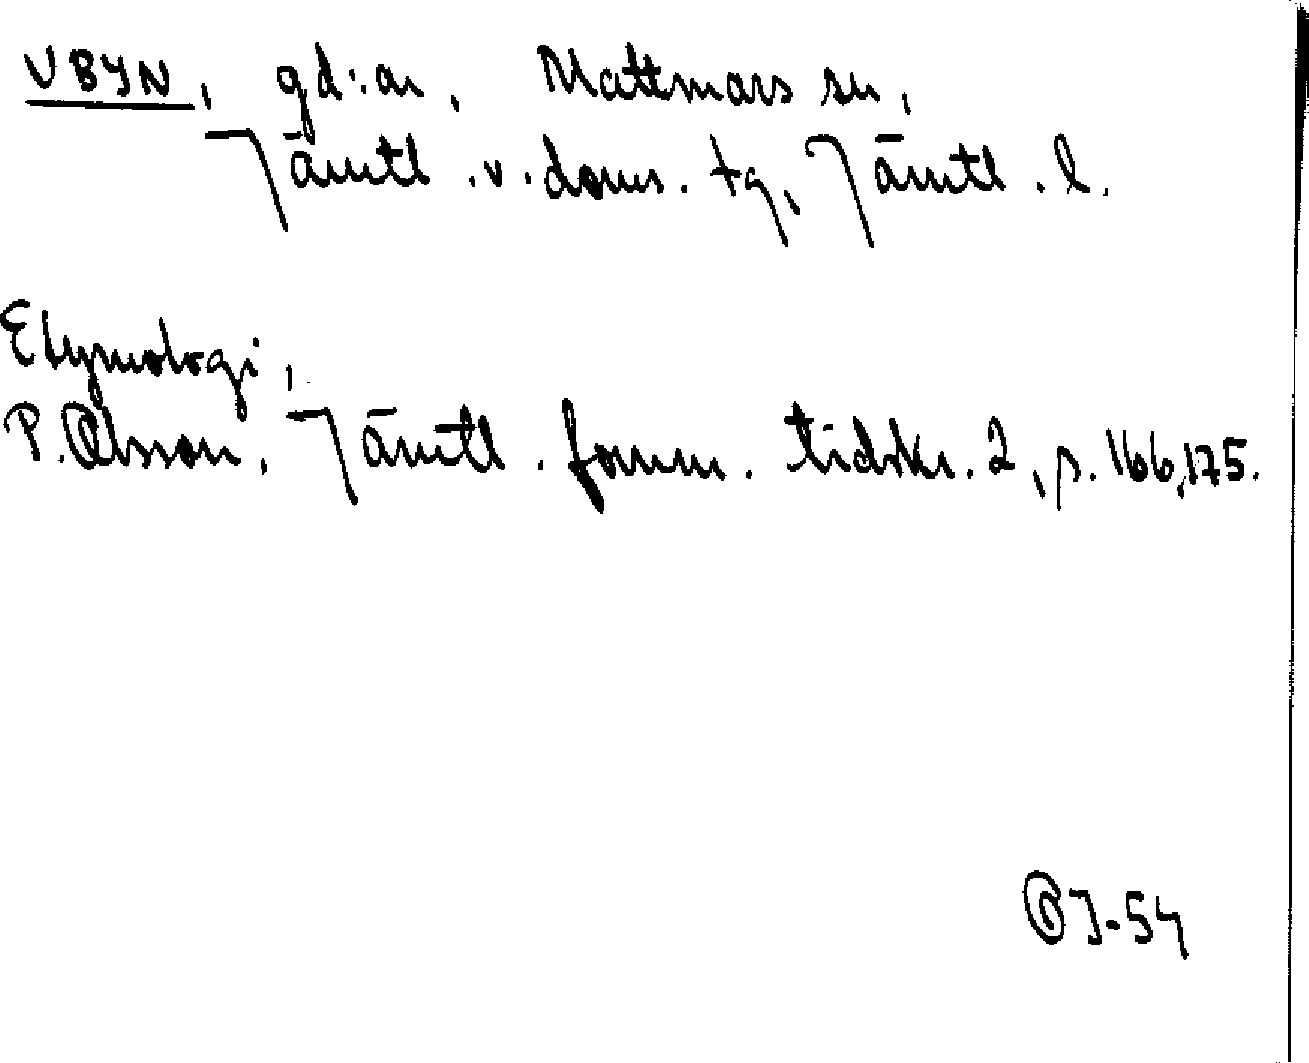 VBYN, gd:ar, Mattmars sn,
Jämtl. v. doms. tg, Jämtl. l.
Etymologi,
P. Olsson, Jämtl. fornm. tidskr. 2, s. 166, 175.
OJ-54